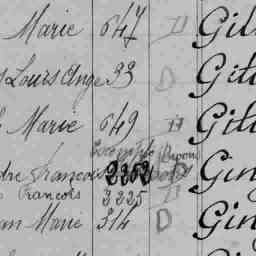 Marie 647 D Gil
Louis Ange 33 D Git
Marie 649 H Git
François 2262 D Gin
François 2225 D
Marie 314 D Gin